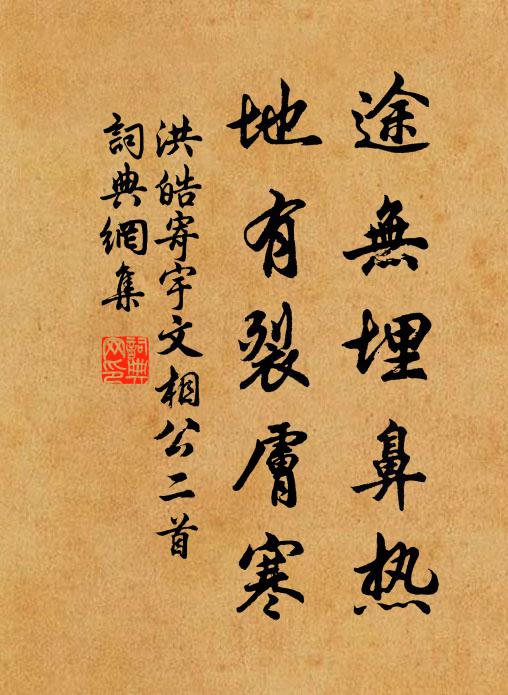 途無埋鼻热
地有裂膚寒
洪皓寄宇文相公二首
詞典網集
詞典網印